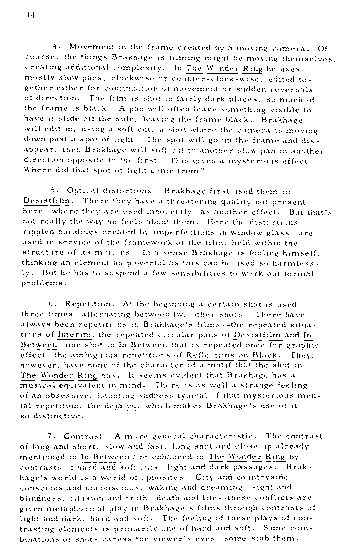 14
4. Movement in the frame created by a moving camera. Of
course, the things Brakhage is filming might be moving themselves,
creating additional complexity. In The Wonder Ring he uses
mostly slow pans, clockwise or counter-clockwise, edited to-
gether either for continuation of movement or sudden reversals
of direction. The film is shot in fairly dark places, so much of
the frame is black. A pan will often leave something visible to
have it slide off the side, leaving the frame black. Brakhage
will edit in, using a soft cut, a shot where the camera is moving
down past a spot of light. The spot will go up the frame and dis-
appear, then Brakhage will soft cut to another slow pan in another
direction opposite to the first. This gives a mysterious effect.
Where did that spot of light come from?
5. Optical distortions. Brakhage first used them in
Desistfilm. There they have a threatening quality not present
here, where they are used
not really the way he feels about them. Here the distortions,
ripples
used in service of the framework of the film, held within the
structure of its
thinking an element as powerful as this can be used so harmless-
ly. But he has to suspend a few sensibilities to work out formal
problems.
6. Repetition. At the beginning a certain shot is used
three times, alternating between two other shots. There have
always been repetitions in Brakhage's films--the repeated
of Interim, the repeated circular pans of Desistfilm and In
Between, one shot in In Between that is repeated once for graphic
effect, the ambiguous repetitions of Reflections on Black. They,
however, have none of the character of a motif that the shot in
The Wonder Ring has. It seems evident that Brakhage has a
musical equivalent in mind. There is as well a strange feeling
of an obsessive, haunting sadness typical of that mysterious men-
tal repetition, the deja vu, which makes Brakhage's use of it
so distinctive.
7. Contrast. A more general characteristic. The contrast
of long and short, slow and fast, long shot and close up already
mentioned in In Between are enhanced in The Wonder Ring by
contrasts of hard and soft cuts, light and dark passages. Brak-
hage's world is a world of opposites. City and countryside,
conscious and unconscious, waking and dreaming, sight and
blindness, illusion and truth, death and life--these conflicts are
given metaphorical play in Brakhage's films through contrasts of
light and dark, hard and soft. The feeling of these plays of con-
trasting elements is primarily one of hard and soft. Some com-
binations of shots caress the viewer's eyes, some stab them.